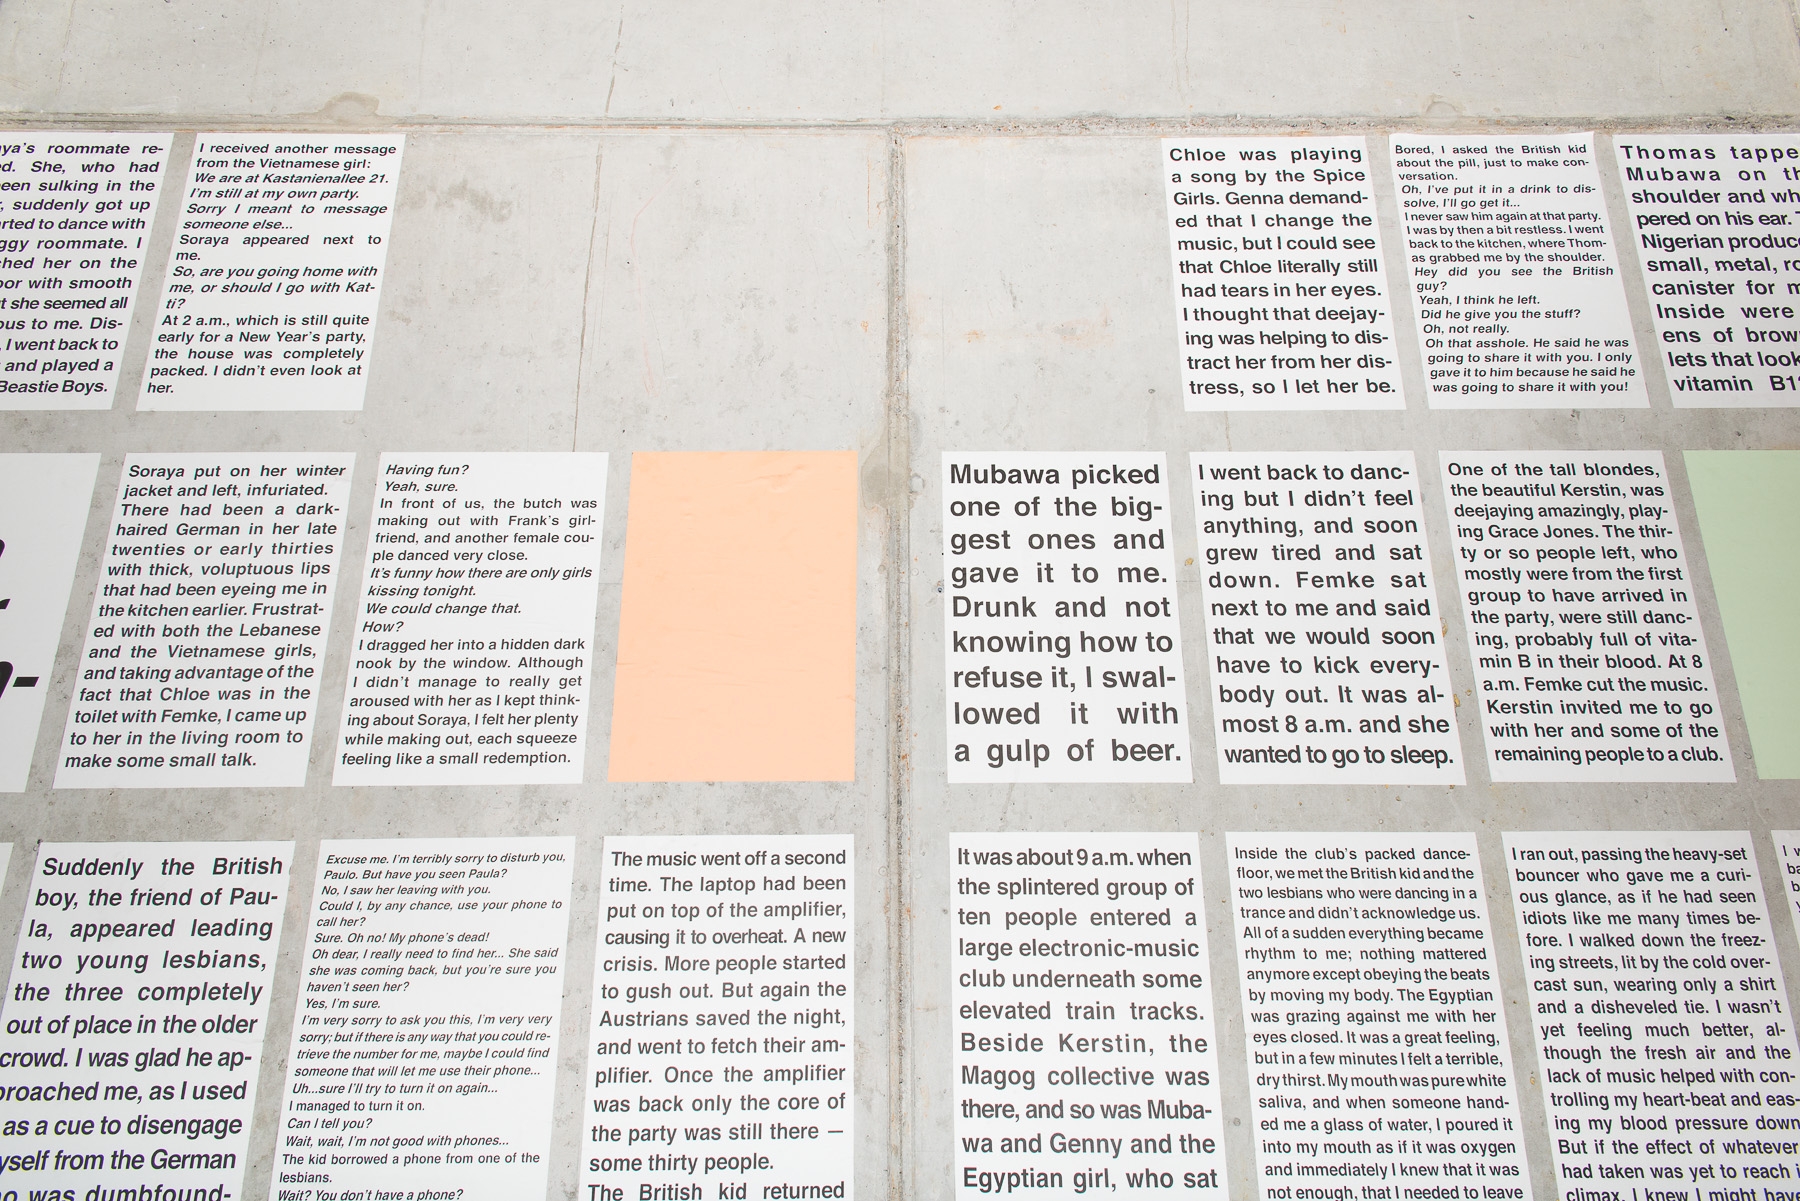 ya's roommate re-
ed. She, who had
been sulking in the
suddenly got up
arted to dance with
ggy roommate. I
ched her on the
oor with smooth
t she seemed all
ous to me. Dis-
, I went back to
and played a
Beastie Boys.
I received another message
from the Vietnamese girl:
We are at Kastanienallee 21.
I'm still at my own party.
Sorry I meant to message
someone else...
Soraya appeared next to
me.
So, are you going home with
me, or should I go with Kat-
ti?
At 2 a.m., which is still quite
early for a New Year's party,
the house was completely
packed. I didn't even look at
her.
Chloe was playing
a song by the Spice
Girls. Genna demand-
ed that I change the
music, but I could see
that Chloe literally still
had tears in her eyes.
I thought that deejay-
ing was helping to dis-
tract her from her dis-
tress, so I let her be.
Bored, I asked the British kid
about the pill, just to make con-
versation.
Oh, I've put it in a drink to dis-
solve, I'll go get it...
I never saw him again at that party.
I was by then a bit restless. I went
back to the kitchen, where Thom-
as grabbed me by the shoulder.
Hey did you see the British
guy?
Yeah, I think he left.
Did he give you the stuff?
Oh, not really.
Oh that asshole. He said he was
going to share it with you. I only
gave it to him because he said he
was going to share it with you!
Thomas tappe
Mubawa on th
shoulder and wh
pered on his ear. T
Nigerian produce
small, metal, ro
canister for m
Inside were
ens of brow
lets that look
vitamin B1
Soraya put on her winter
jacket and left, infuriated.
There had been a dark-
haired German in her late
twenties or early thirties
with thick, voluptuous lips
that had been eyeing me in
the kitchen earlier. Frustrat-
ed with both the Lebanese
and the Vietnamese girls,
and taking advantage of the
fact that Chloe was in the
toilet with Femke, I came up
to her in the living room to
make some small talk.
Having fun?
Yeah, sure.
In front of us, the butch was
making out with Frank's girl-
friend, and another female cou-
ple danced very close.
It's funny how there are only girls
kissing tonight.
We could change that.
How?
I dragged her into a hidden dark
nook by the window. Although
I didn't manage to really get
aroused with her as I kept think-
ing about Soraya, I felt her plenty
while making out, each squeeze
feeling like a small redemption.
Mubawa picked
one of the big-
gest ones and
gave it to me.
Drunk and not
knowing how to
refuse it, I swal-
lowed it with
a gulp of beer.
I went back to danc-
ing but I didn't feel
anything, and soon
grew tired and sat
down. Femke sat
next to me and said
that we would soon
have to kick every-
body out. It was al-
most 8 a.m. and she
wanted to go to sleep.
One of the tall blondes,
the beautiful Kerstin, was
deejaying amazingly, play-
ing Grace Jones. The thir-
ty or so people left, who
mostly were from the first
group to have arrived in
the party, were still danc-
ing, probably full of vita-
min B in their blood. At 8
a.m. Femke cut the music.
Kerstin invited me to go
with her and some of the
remaining people to a club.
Suddenly the British
boy, the friend of Pau-
la, appeared leading
two young lesbians,
the three completely
out of place in the older
crowd. I was glad he ap-
proached me, as I used
as a cue to disengage
yself from the German
o was dumbfound-
Excuse me. I'm terribly sorry to disturb you,
Paulo. But have you seen Paula?
No, I saw her leaving with you.
Could I, by any chance, use your phone to
call her?
Sure. Oh no! My phone's dead!
Oh dear, I really need to find her... She said
she was coming back, but you're sure you
haven't seen her?
Yes, I'm sure.
I'm very sorry to ask you this, I'm very very
sorry; but if there is any way that you could re-
trieve the number for me, maybe I could find
someone that will let me use their phone...
Uh...sure I'll try to turn it on again...
I managed to turn it on.
Can I tell you?
Wait, wait, I'm not good with phones...
The kid borrowed a phone from one of the
lesbians.
Wait? You don't have a phone?
The music went off a second
time. The laptop had been
put on top of the amplifier,
causing it to overheat. A new
crisis. More people started
to gush out. But again the
Austrians saved the night,
and went to fetch their am-
plifier. Once the amplifier
was back only the core of
the party was still there —
some thirty people.
The British kid returned
It was about 9 a.m. when
the splintered group of
ten people entered a
large electronic-music
club underneath some
elevated train tracks.
Beside Kerstin, the
Magog collective was
there, and so was Muba-
wa and Genny and the
Egyptian girl, who sat
Inside the club's packed dance-
floor, we met the British kid and the
two lesbians who were dancing in a
trance and didn't acknowledge us.
All of a sudden everything became
rhythm to me; nothing mattered
anymore except obeying the beats
by moving my body. The Egyptian
was grazing against me with her
eyes closed. It was a great feeling,
but in a few minutes I felt a terrible,
dry thirst. My mouth was pure white
saliva, and when someone hand-
ed me a glass of water, I poured it
into my mouth as if it was oxygen
and immediately I knew that it was
not enough, that I needed to leave
I ran out, passing the heavy-set
bouncer who gave me a curi-
ous glance, as if he had seen
idiots like me many times be-
fore. I walked down the freez-
ing streets, lit by the cold over-
cast sun, wearing only a shirt
and a disheveled tie. I wasn't
yet feeling much better, al-
though the fresh air and the
lack of music helped with con-
trolling my heart-beat and eas-
ing my blood pressure down
But if the effect of whatever
had taken was yet to reach i
climax, I knew I might have